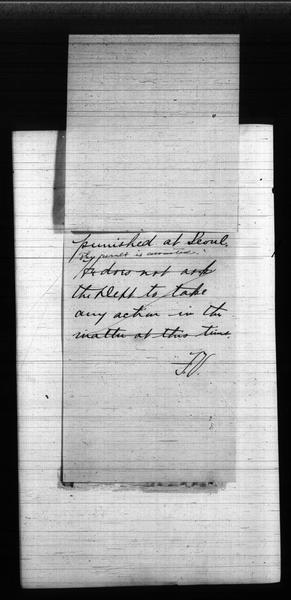 punished at Seoul.
is
He does not ask
the Dept to take
any action in the
matter at this time.